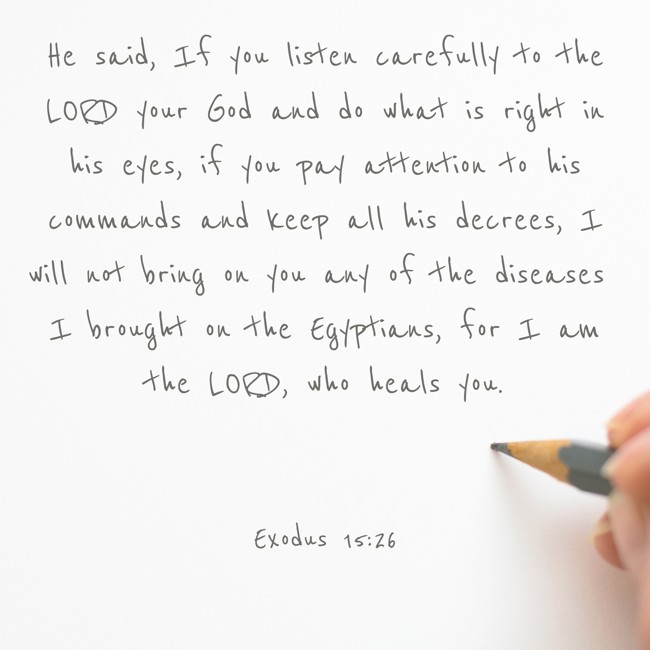 He said, If you listen carefully to the
LORD your God and do what is right in
his eyes, if you pay attention to his
commands and keep all his decrees, I
will not bring on you any of the diseases
I brought on the Egyptians, for I am
the LORD, who heals you.
Exodus 15:26